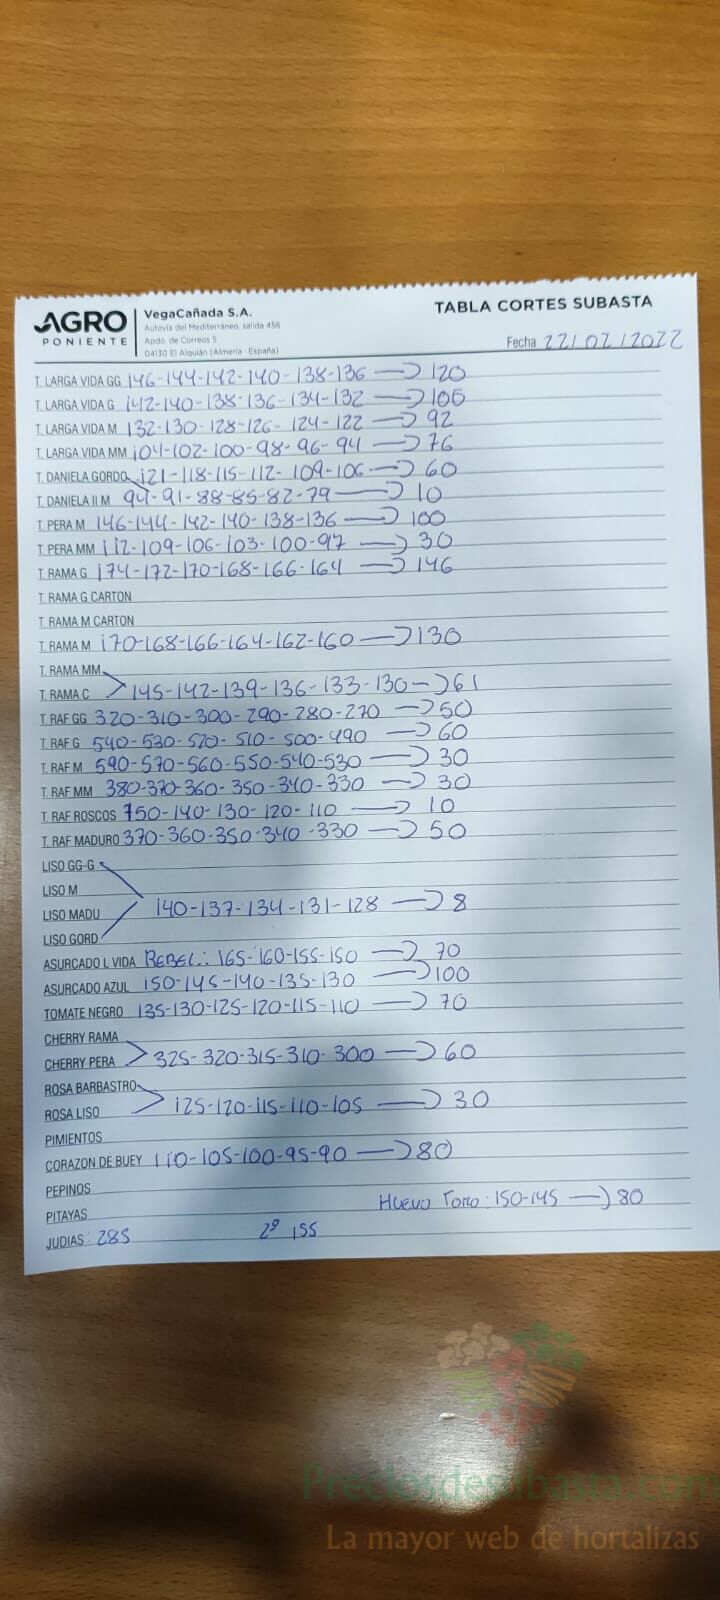 AGRO
PONIENTE
VegaCañada S.A.
Autovía del Mediterráneo, salida 456
Apdo. de Correos 5
04130 El Alquián (Almería - España)
TABLA CORTES SUBASTA
Fecha 22/02/2022
T. LARGA VIDA GG 146-144-142-140-138-136 → 120
T. LARGA VIDA G 142-140-138-136-134-132 → 106
T. LARGA VIDA M 132-130-128-126-124-122 → 92
T. LARGA VIDA MM 104-102-100-98-96-94 → 76
T. DANIELA GORDO 121-118-115-112-109-106 → 60
T. DANIELA II M 94-91-88-85-82-79 → 10
T. PERA M 146-144-142-140-138-136 → 100
T. PERA MM 112-109-106-103-100-97 → 30
T. RAMA G 174-172-170-168-166-164 → 146
T. RAMA G CARTON
T. RAMA M CARTON
T. RAMA M 170-168-166-164-162-160 → 130
T. RAMA MM
T. RAMA C 145-142-139-136-133-130 → 61
T. RAF GG 320-310-300-290-280-270 → 50
T. RAF G 540-530-520-510-500-490 → 60
T. RAF M 590-570-560-550-540-530 → 30
T. RAF MM 380-370-360-350-340-330 → 30
T. RAF ROSCOS 150-140-130-120-110 → 10
T. RAF MADURO 370-360-350-340-330 → 50
LISO GG-G
LISO M
LISO MADU 140-137-134-131-128 → 8
LISO GORD
ASURCADO L VIDA REBEL: 165-160-155-150 → 70
ASURCADO AZUL 150-145-140-135-130 → 100
TOMATE NEGRO 135-130-125-120-115-110 → 70
CHERRY RAMA
CHERRY PERA 325-320-315-310-300 → 60
ROSA BARBASTRO
ROSA LISO 125-120-115-110-105 → 30
PIMIENTOS
CORAZON DE BUEY 110-105-100-95-90 → 80
PEPINOS
PITAYAS Huevo Toro: 150-145 → 80
JUDIAS: 285 2º 155
Preciosdesubasta.com
La mayor web de hortalizas